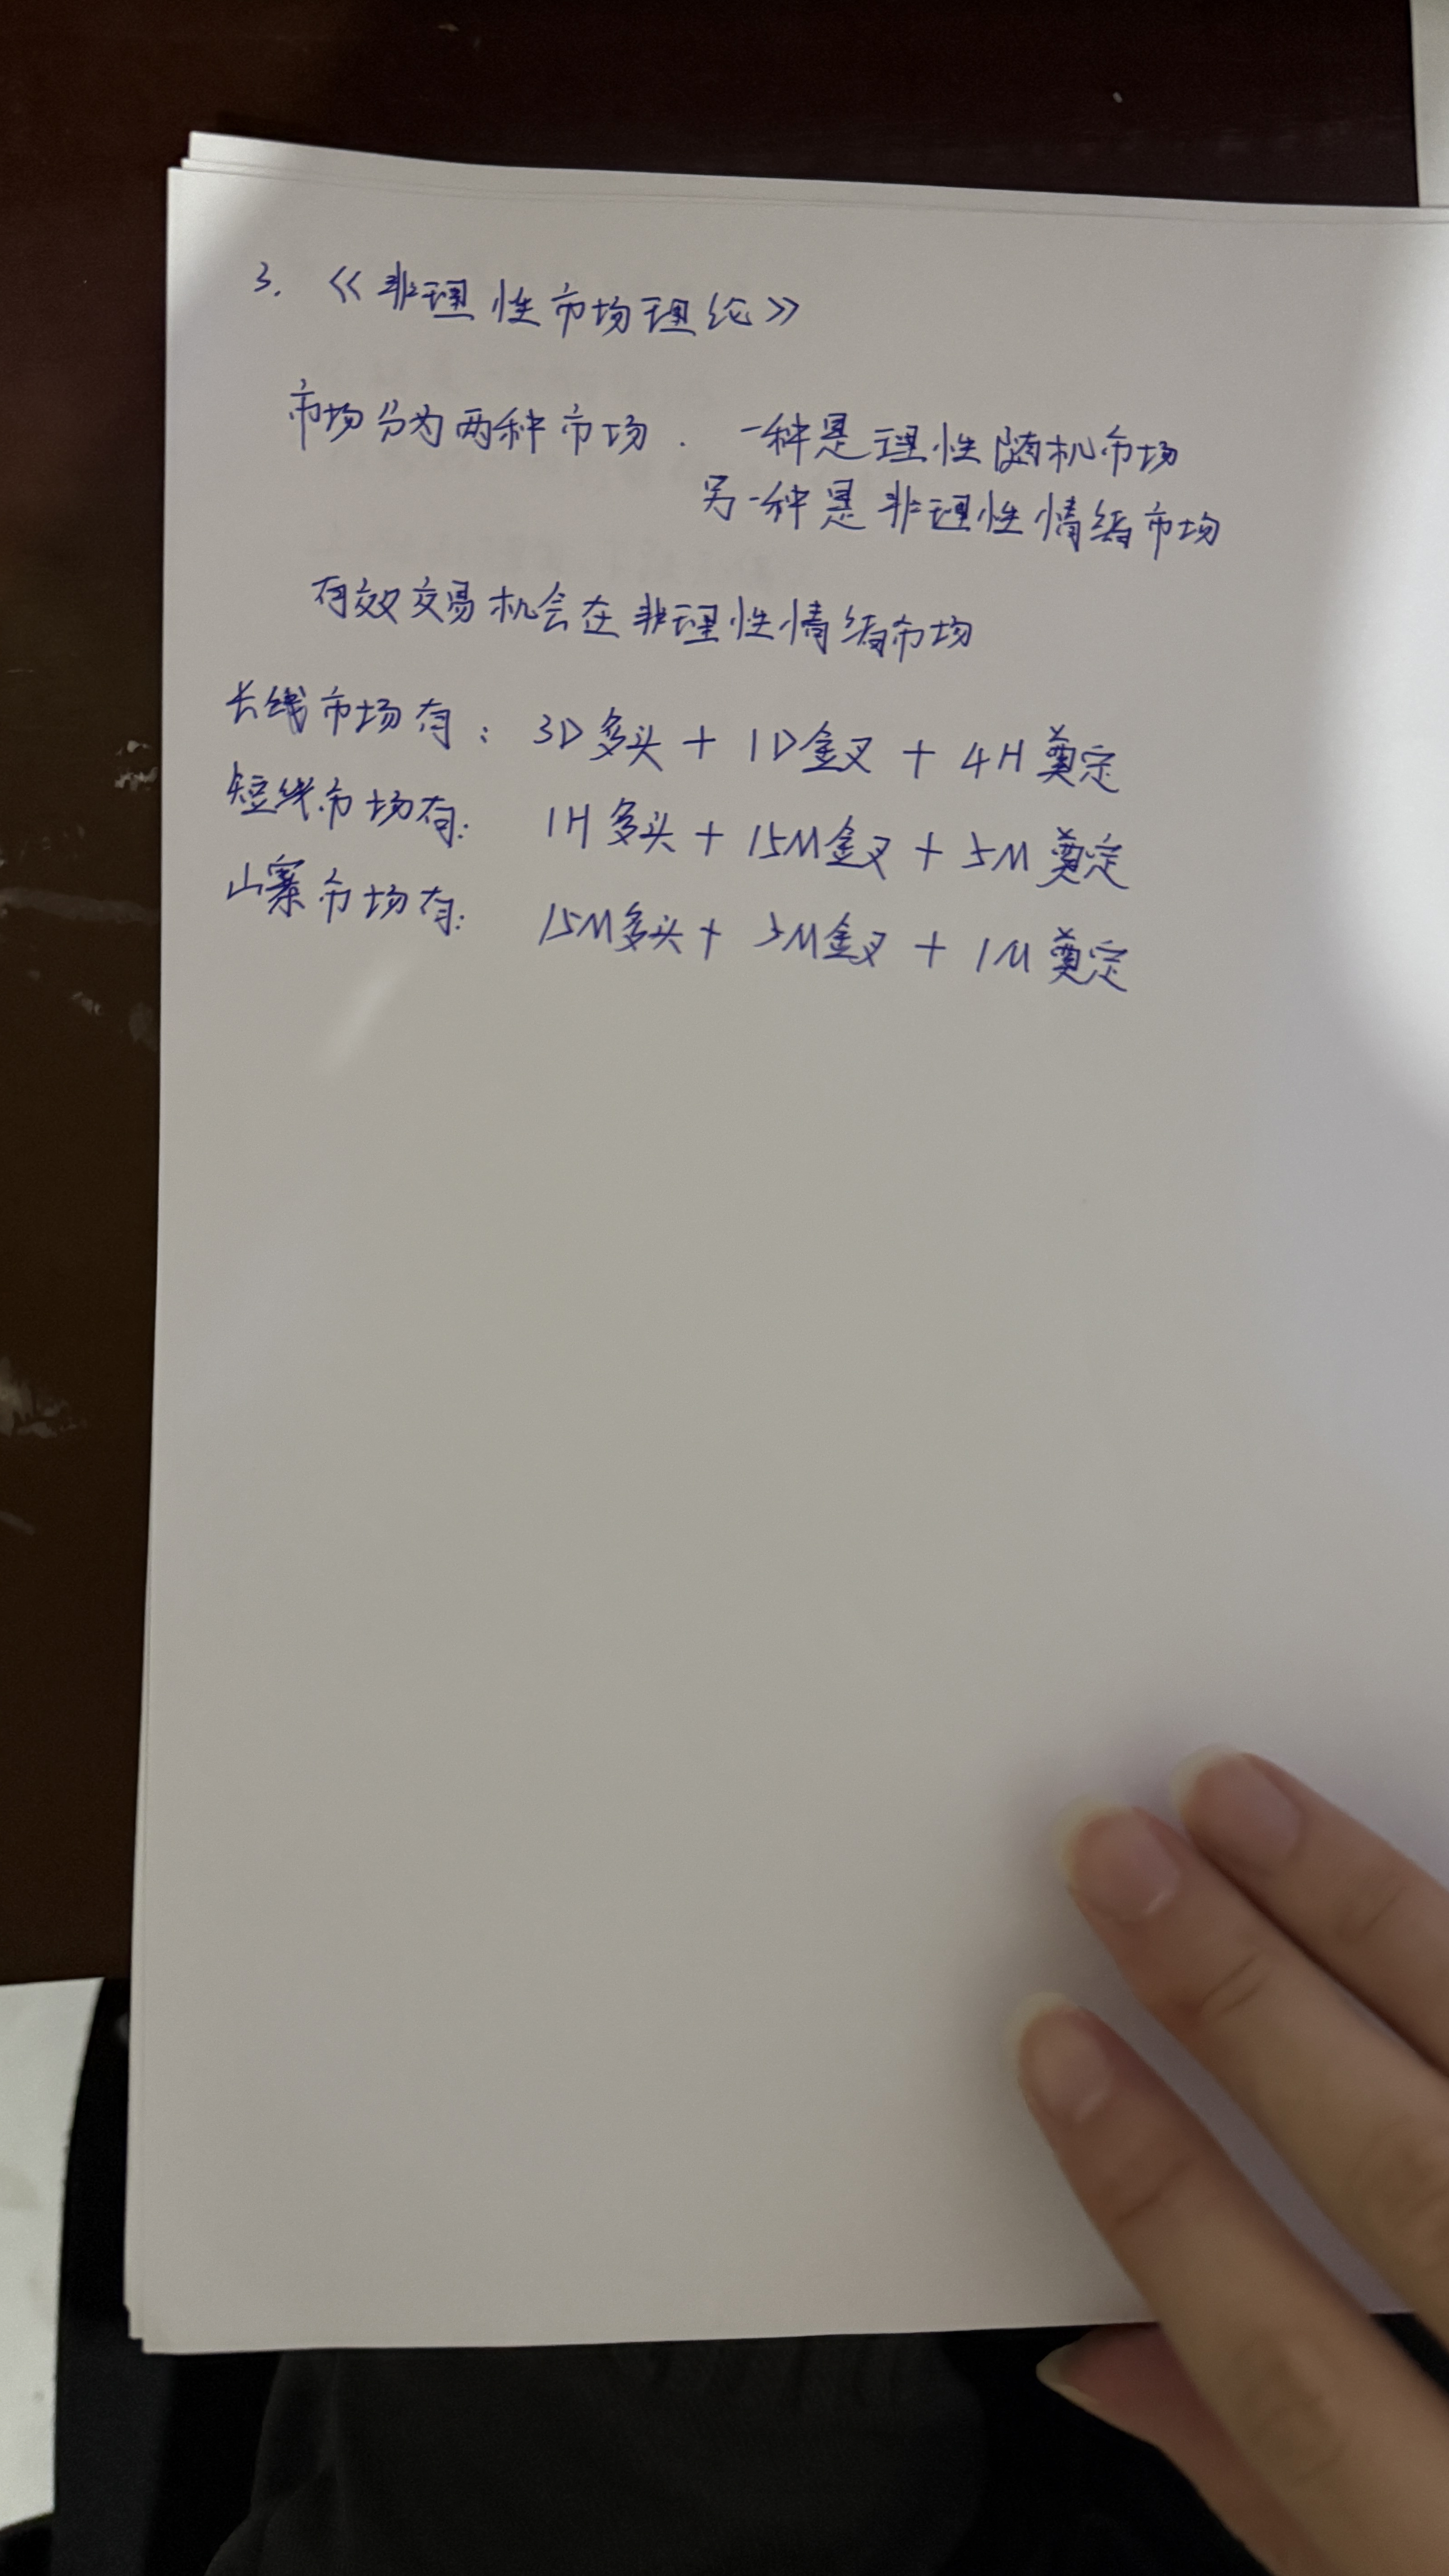 3. 《非理性市场理论》
市场分为两种市场. 一种是理性随机市场
另一种是非理性情绪市场
有效交易机会在非理性情绪市场
长线市场有: 3D多头 + 1D金叉 + 4H奠定
短线市场有: 1H多头 + 15M金叉 + 5M奠定
山寨市场有: 15M多头 + 5M金叉 + 1M奠定